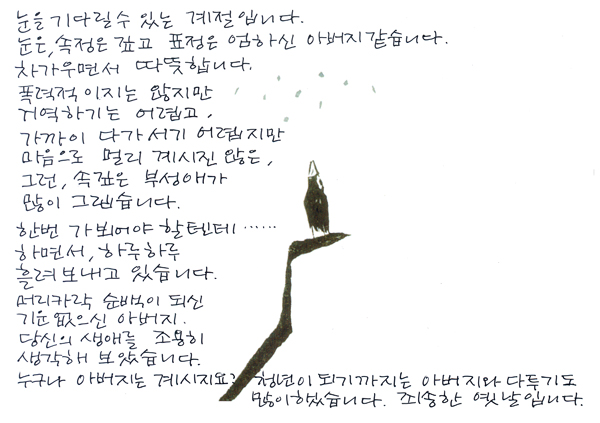 눈을 기다릴 수 있는 계절입니다.
눈은, 속정은 깊고 표정은 엄하신 아버지 같습니다.
차가우면서 따뜻합니다.
폭력적이지는 않지만
거역하기는 어렵고,
가까이 다가서기 어렵지만
마음으로 멀리 계시진 않은,
그런, 속 깊은 부성애가
많이 그립습니다.
한번 가 뵈어야 할텐데……
하면서, 하루하루
흘려 보내고 있습니다.
머리카락 순백이 되신
기운 없으신 아버지.
당신의 생애를 조용히
생각해 보았습니다.
누구나 아버지는 계시지요? 청년이 되기까지는 아버지와 다투기도
많이 했습니다. 죄송한 옛날입니다.